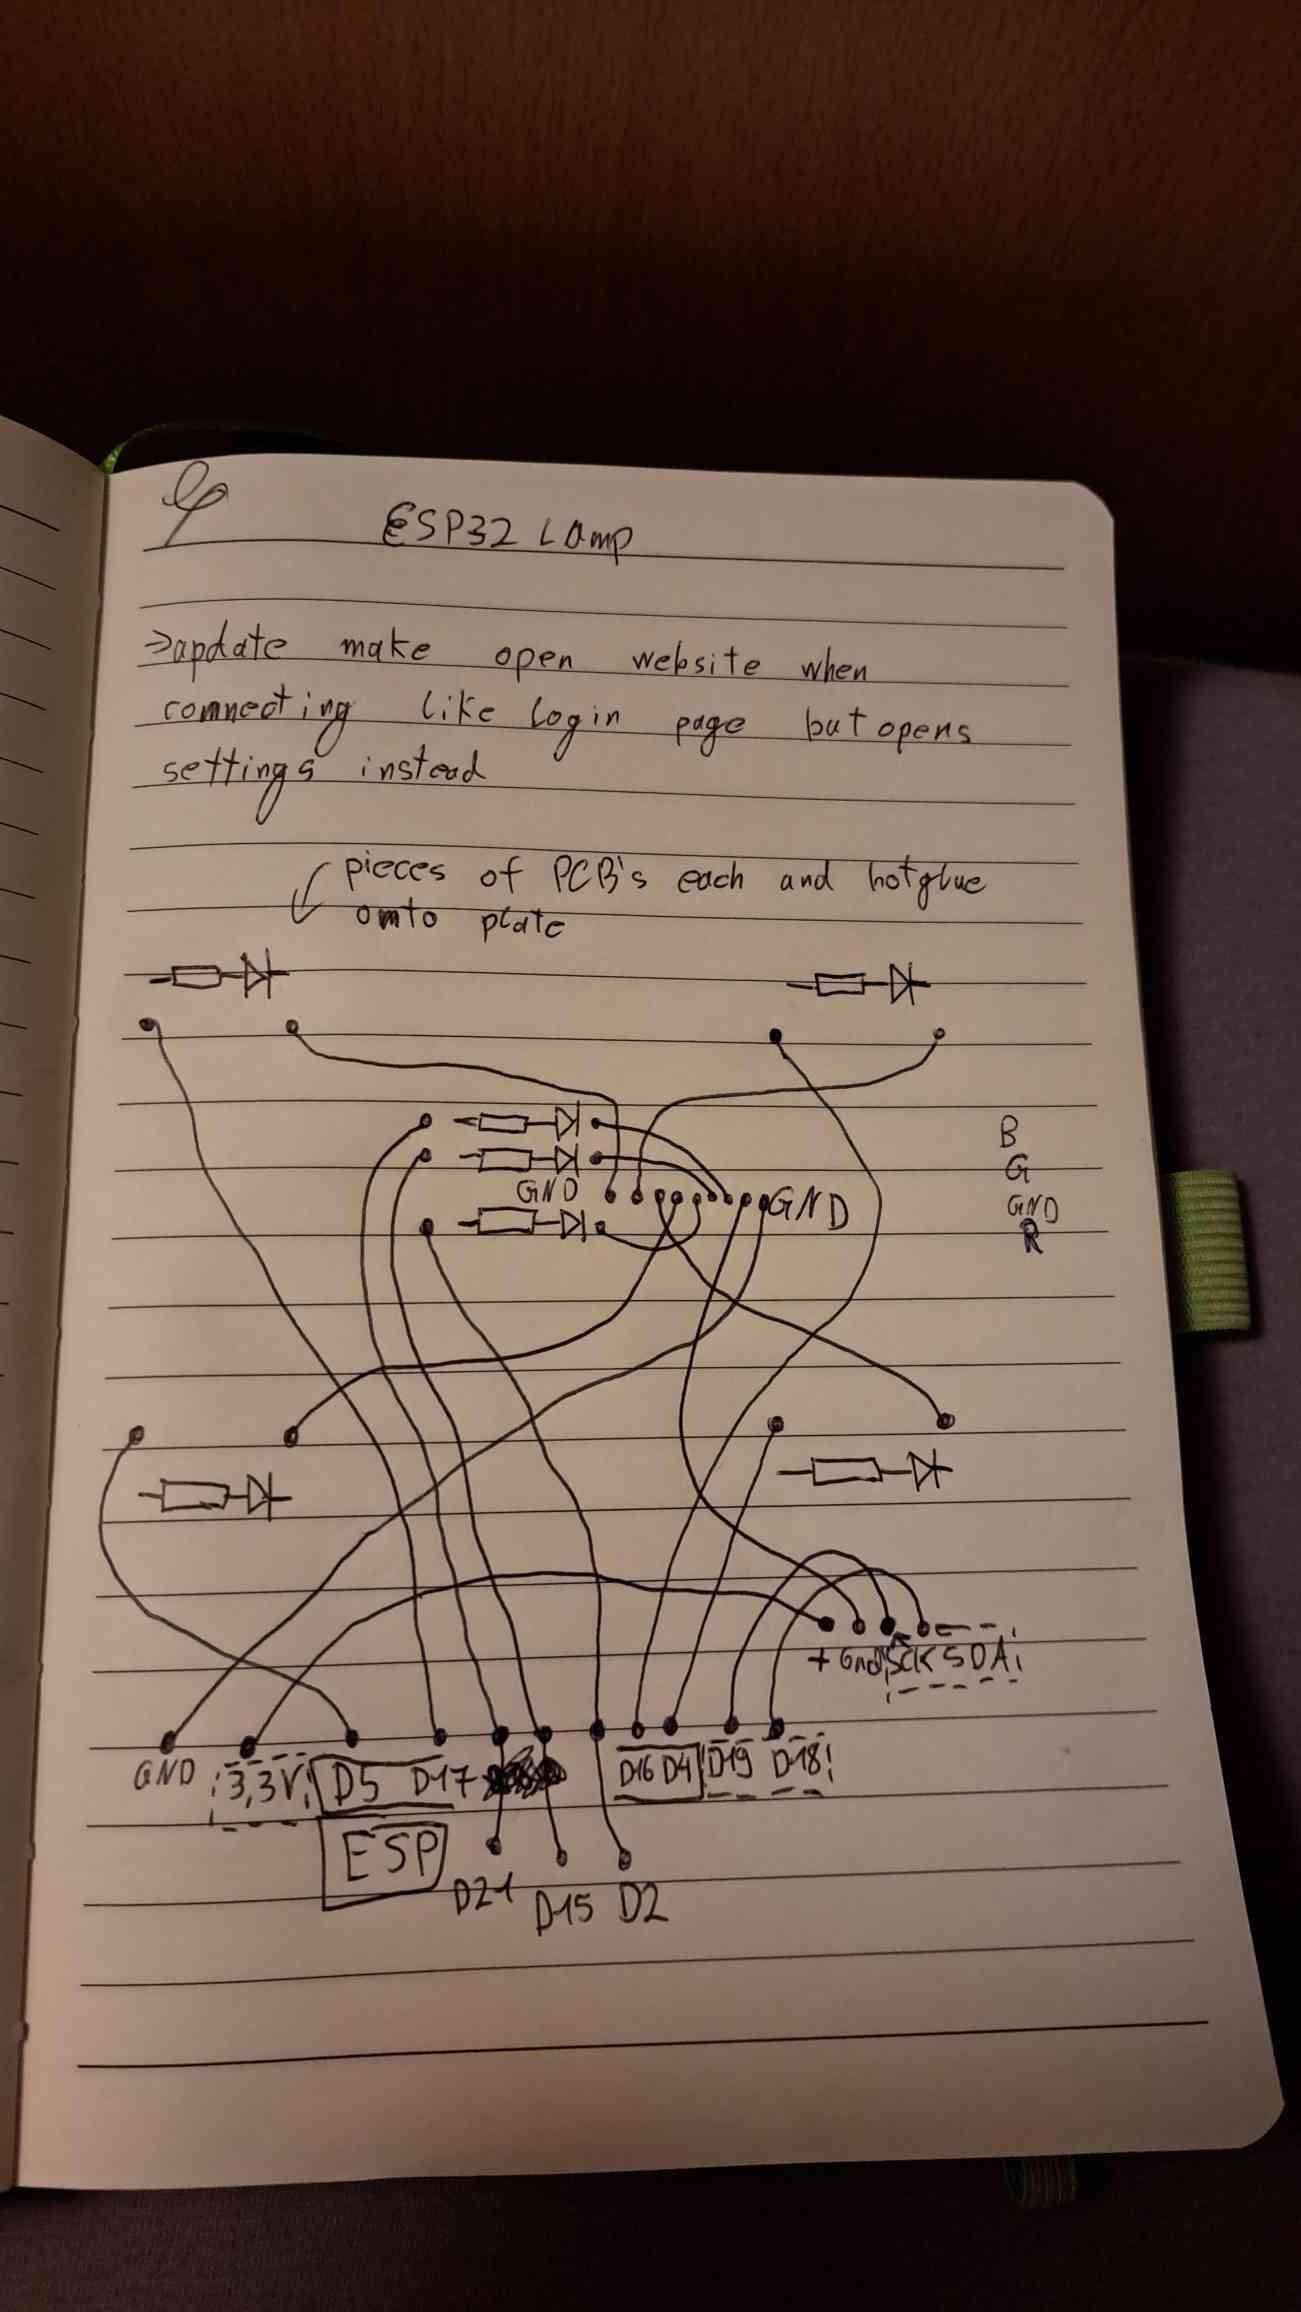 ESP32 Lamp
=>apdate make open website when
connecting like login page but opens
settings instead
pieces of PCB's each and hotglue
onto plate
B
G
GND
R
GND
GND
+ Gnd SCK SDA
GND 3,3V D5 D17 D16 D4 D19 D18
ESP
D21 D15 D2